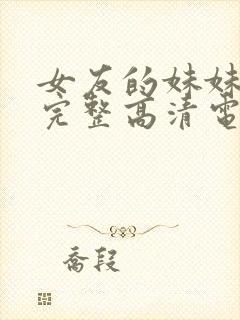 女友的妹妹
完整高清电
喬段